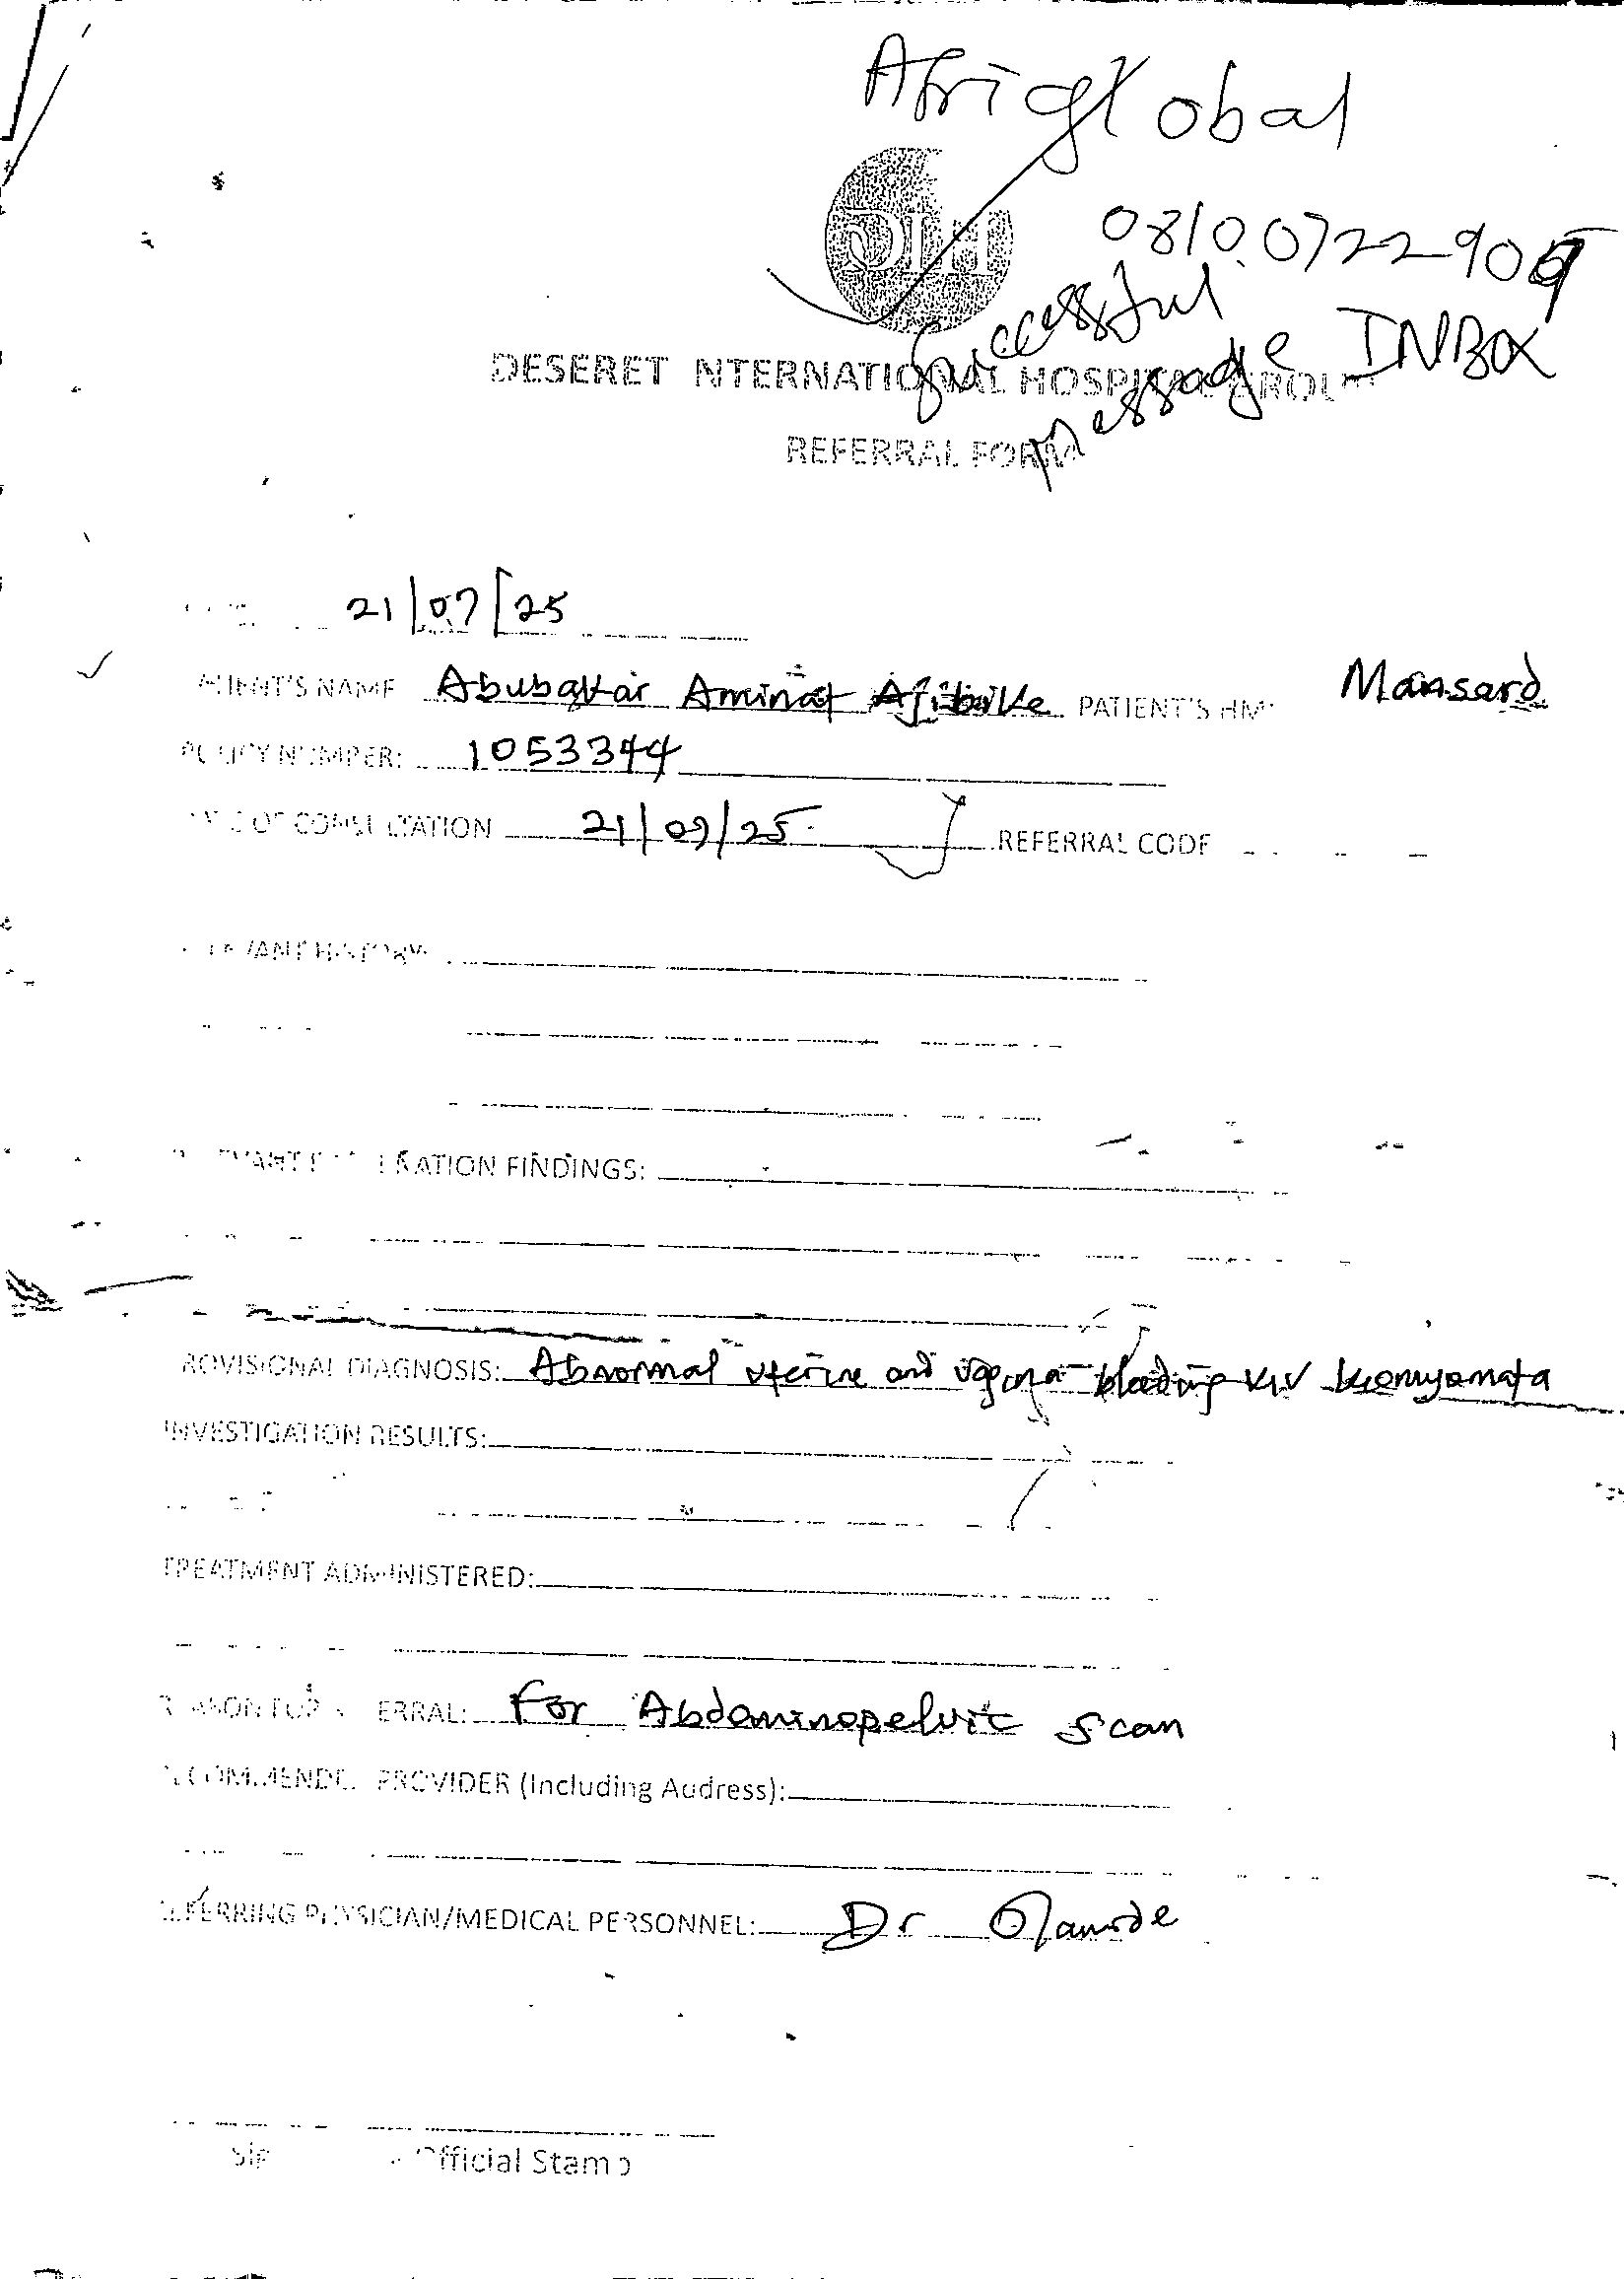 Afriglobal
DIH
0810 0722 909
successful
message INBOX
DESERET INTERNATIONAL HOSPITAL GROUP
REFERRAL FORM
21/07/25
PATIENT'S NAME Abubakar Aminat Ajibike PATIENT'S HMO Mansard
POLICY NUMBER: 1053344
DATE OF CONSULTATION 21/07/25 REFERRAL CODE
RELEVANT HISTORY
RELEVANT EXAMINATION FINDINGS:
PROVISIONAL DIAGNOSIS: Abnormal uterine and vaginal bleeding KIV
INVESTIGATION RESULTS:
TREATMENT ADMINISTERED:
REASON FOR REFERRAL: For Abdominopelvic scan
RECOMMENDED PROVIDER (Including Address):
REFERRING PHYSICIAN/MEDICAL PERSONNEL: Dr Olamide
Official Stamp